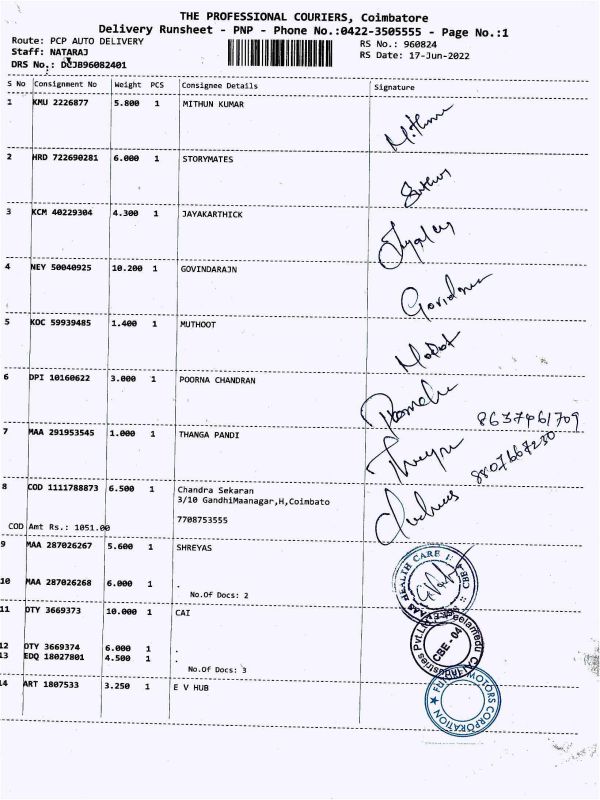 THE PROFESSIONAL COURIERS, Coimbatore
Delivery Runsheet - PNP - Phone No.:0422-3505555 - Page No.:1
Route: PCP AUTO DELIVERY
RS No.: 960824
Staff: NATARAJ
RS Date: 17-Jun-2022
DRS No.: DCJB96082401
S No Consignment No Weight PCS Consignee Details Signature
1 KMU 2226877 5.800 1 MITHUN KUMAR
Mithun
2 HRD 722690281 6.000 1 STORYMATES
3 KCM 40229304 4.300 1 JAYAKARTHICK
4 NEY 50040925 10.200 1 GOVINDARAJN
5 KOC 59939485 1.400 1 MUTHOOT
6 DPI 10160622 3.000 1 POORNA CHANDRAN
8637461709
7 MAA 291953545 1.000 1 THANGA PANDI
8807667230
8 COD 1111788873 6.500 1 Chandra Sekaran
3/10 GandhiMaanagar,H,Coimbato
7708753555
COD Amt Rs.: 1051.00
9 MAA 287026267 5.600 1 SHREYAS
10 MAA 287026268 6.000 1 .
No.Of Docs: 2
11 OTY 3669373 10.000 1 CAI
12 OTY 3669374 6.000 1 .
13 EDQ 18027801 4.500 1 .
No.Of Docs: 3
14 ART 1807533 3.250 1 E V HUB
HEALTH CARE
CBE-4
CBE-04
MOTORS CORPORATION